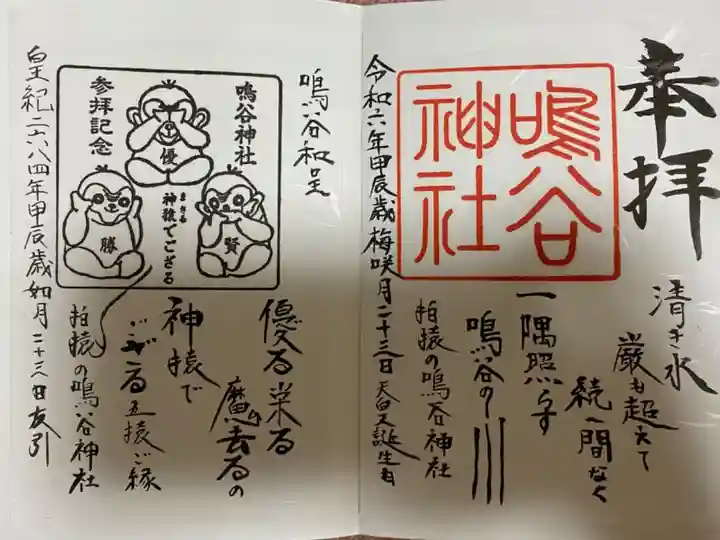 奉拝
清き水
巌も超えて
続一間なく
一隅照らす
鳴谷の川
鳴谷
神社
拍猿の鳴谷神社
令和六年甲辰歳梅咲月二十三日天皇誕生日
鳴谷和呈
鳴谷神社
参拝記念
優
勝
賢
まさる
神猿でござる
優る栄る
魔去るの
神猿で
ござる五猿ご縁
拍猿の鳴谷神社
皇紀二六八四年甲辰歳如月二十三日友引